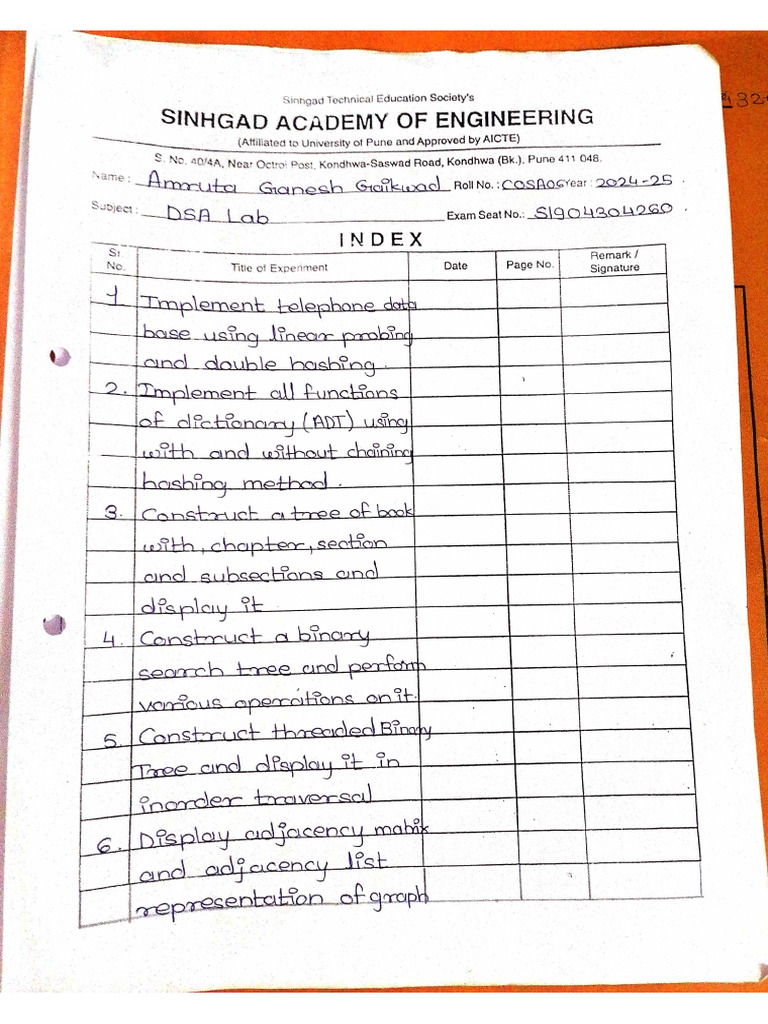 Sinhgad Technical Education Society's
SINHGAD ACADEMY OF ENGINEERING
(Affiliated to University of Pune and Approved by AICTE)
S. No. 40/4A, Near Octroi Post, Kondhwa-Saswad Road, Kondhwa (Bk.). Pune 411 048.
Name : Amruta Ganesh Gaikwad Roll No. : COSA06 Year : 2024-25
Subject : DSA Lab Exam Seat No.: S1904304260
INDEX
Sr. No. Title of Experiment Date Page No. Remark / Signature
1 Implement telephone data
base using linear probing
and double hashing.
2. Implement all functions
of dictionary (ADT) using
with and without chaining
hashing method.
3. Construct a tree of book
with, chapter, section
and subsections and
display it
4. Construct a binary
search tree and perform
various operations on it.
5. Construct threaded Binary
Tree and display it in
inorder traversal
6. Display adjacency matrix
and adjacency list
representation of graph